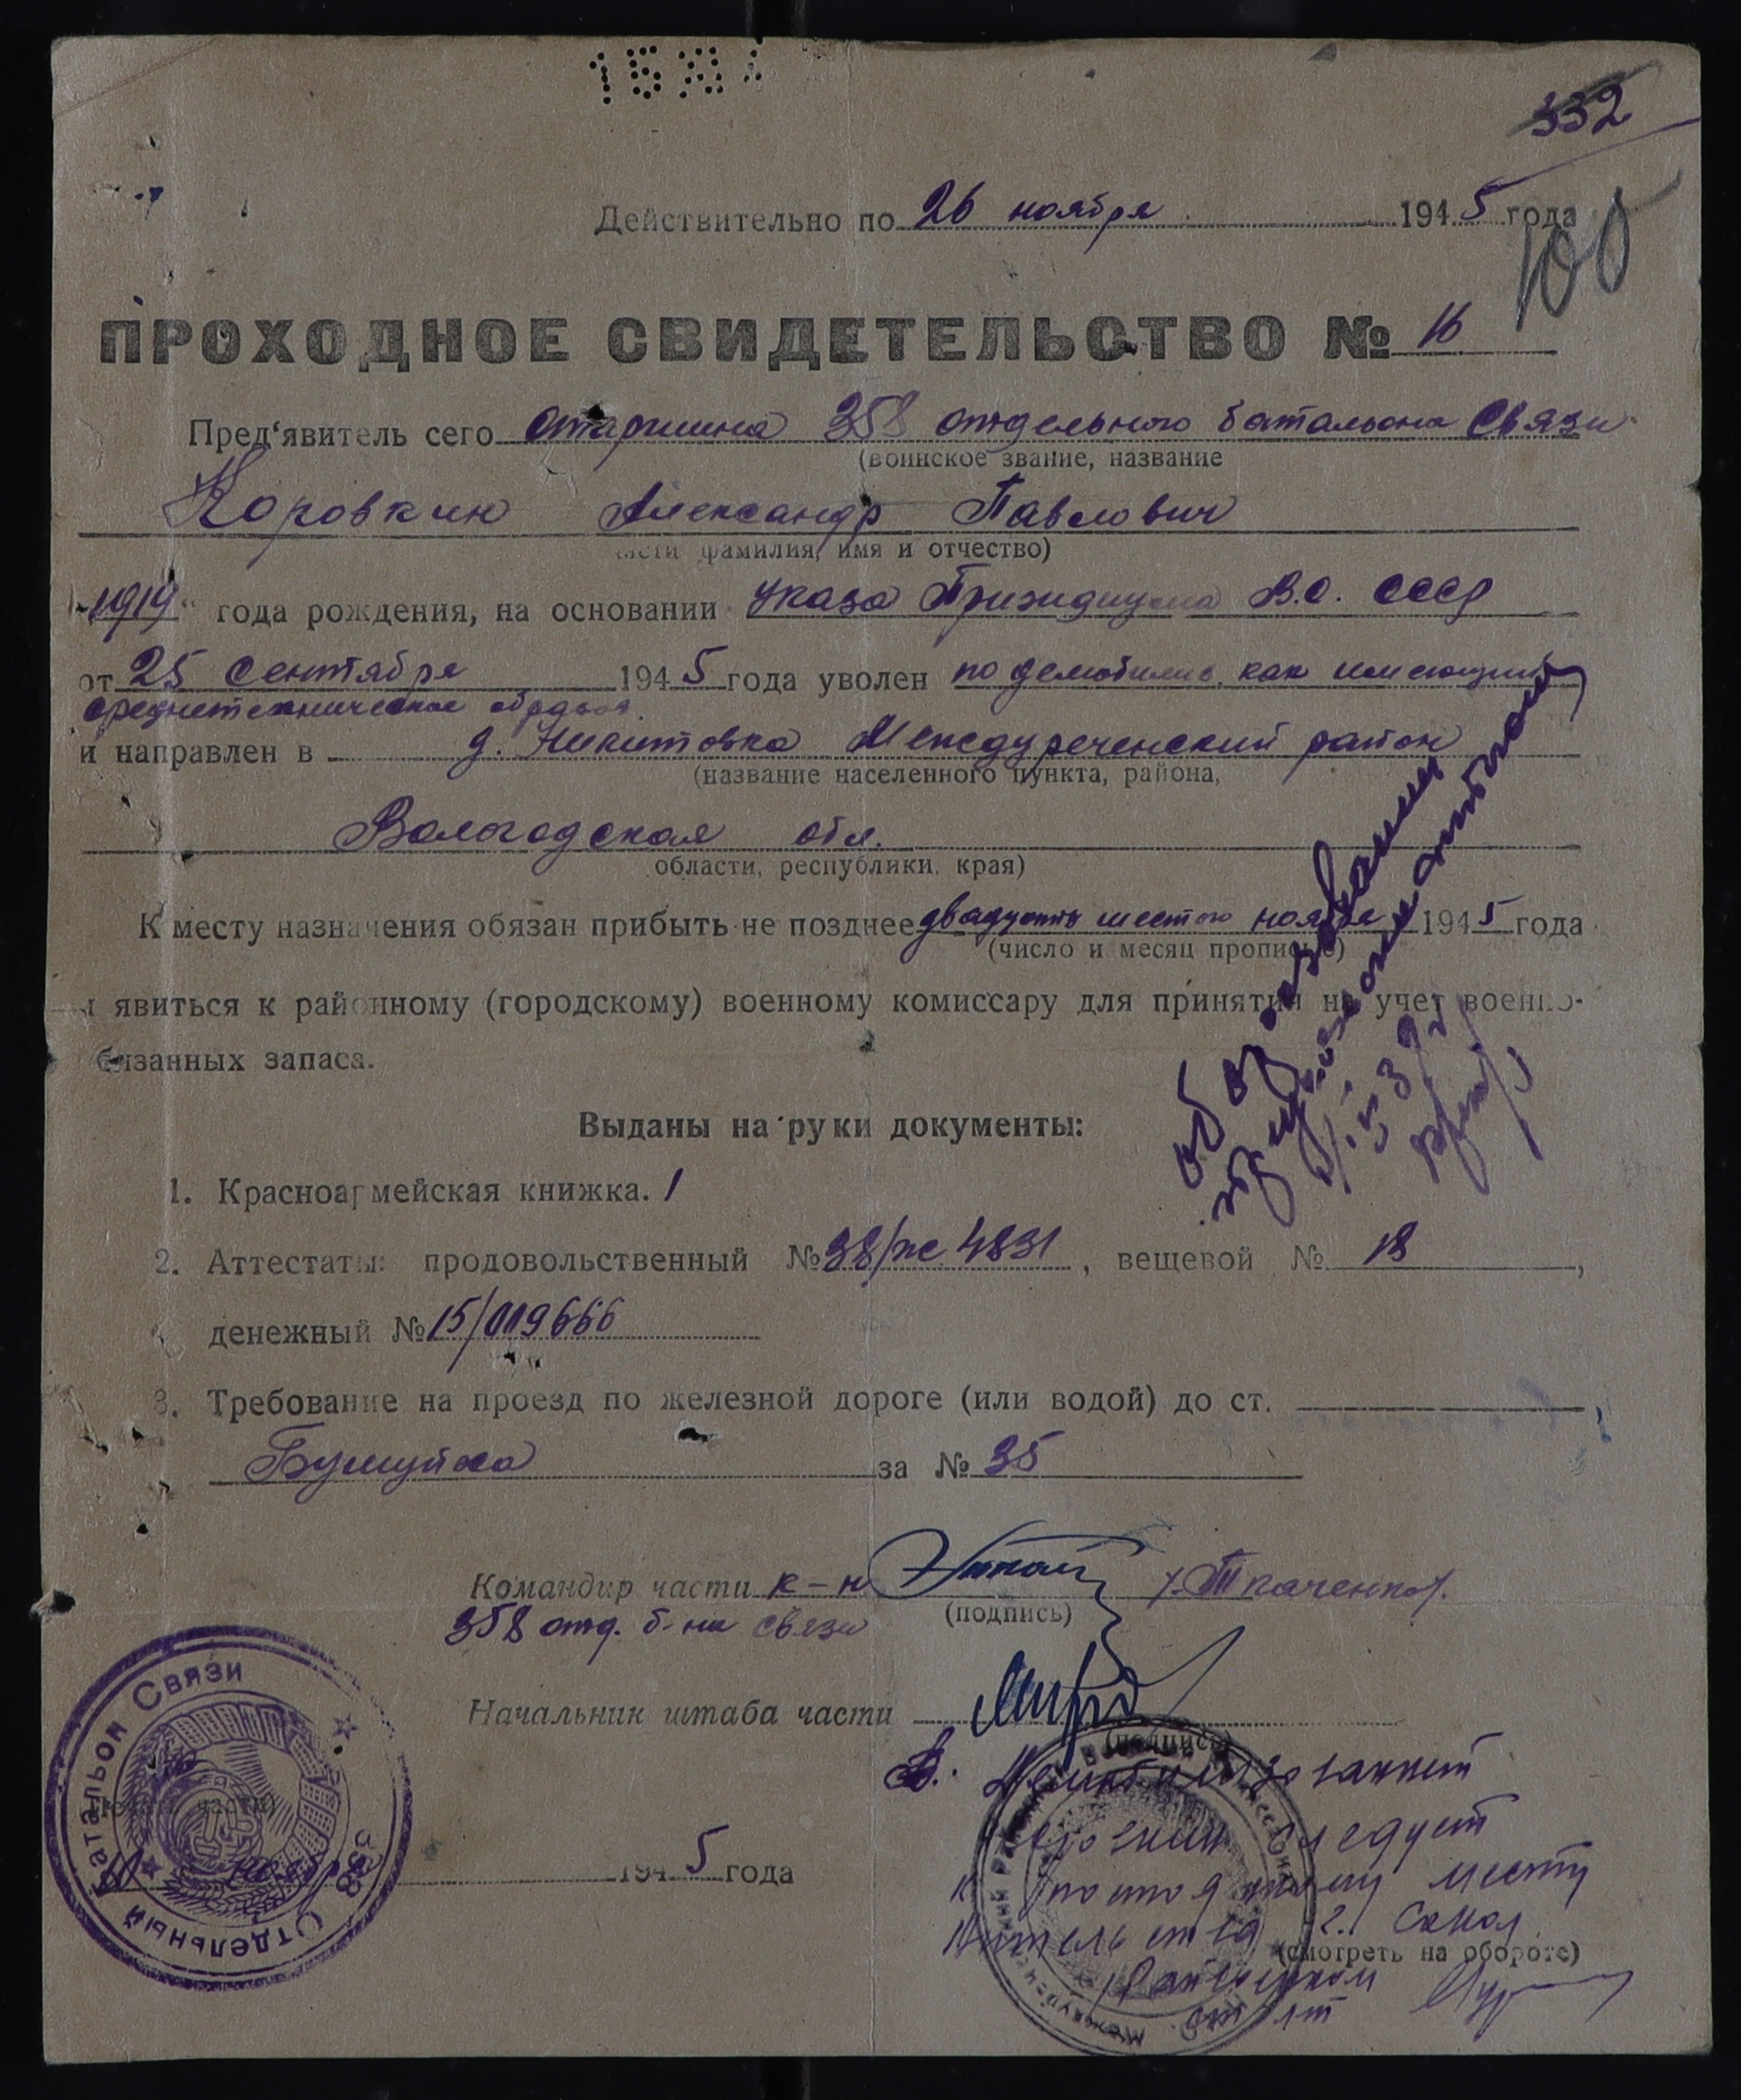 332
Действительно по 26 ноября 1945 года
100
ПРОХОДНОЕ СВИДЕТЕЛЬСТВО № 16
Пред'явитель сего старшина 358 отдельного батальона связи
(воинское звание, название
Коровкин Александр Павлович
части фамилия, имя и отчество)
"1919" года рождения, на основании Указа Призидиума В.С. СССР
от 25 сентября 1945 года уволен по демобилиз. как имеющий
среднетехническое образов.
и направлен в д. Никитовка Междуреченский район
(название населенного пункта, района,
Вологодская обл.
области, республики, края)
К месту назначения обязан прибыть не позднее двадцать шестого ноября 1945 года
(число и месяц прописью)
и явиться к районному (городскому) военному комиссару для принятия на учет военно-
бязанных запаса.
Выданы на руки документы:
1. Красноармейская книжка. 1
2. Аттестаты: продовольственный № 38/ж 4831, вещевой № 18,
денежный № 15/019666
3. Требование на проезд по железной дороге (или водой) до ст.
Бушуйха за № 35
Командир части к-н /Ткаченко/.
358 отд. б-на связи (подпись)
Начальник штаба части
(подпись)
ноября 1945 года
358 Отдельный Батальон Связи
Демобилизованный
Коровкин следует
к постоянному месту
жительства г. Сокол
(смотреть на обороте)
Райвоенком